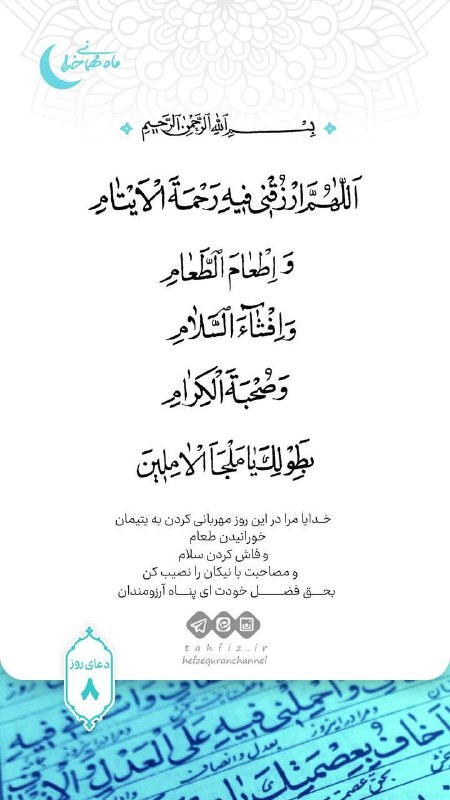 ماه مهمانی خدا
بِسْمِ اللهِ الرَّحْمٰنِ الرَّحیمِ
اَللّٰهُمَّ ارْزُقْنی فیهِ رَحْمَةَ الْاَیْتٰامِ
وَ اِطْعٰامَ الطَّعٰامِ
وَ اِفْشٰآءَ السَّلٰامِ
وَ صُحْبَةَ الْکِرٰامِ
بِطَوْلِکَ یٰا مَلْجَاَ الْاٰمِلینَ
خدایا مرا در این روز مهربانی کردن به یتیمان
خورانیدن طعام
و فاش کردن سلام
و مصاحبت با نیکان را نصیب کن
بحق فضل خودت ای پناه آرزومندان
tahfiz.ir
hefzequranchannel
دعای روز
۸
وَاحْمِلْنی فیهِ عَلَی الْعَدْلِ وَ
بعدل و انصاف
اَخافُ بِعِصْمَتِکَ یا